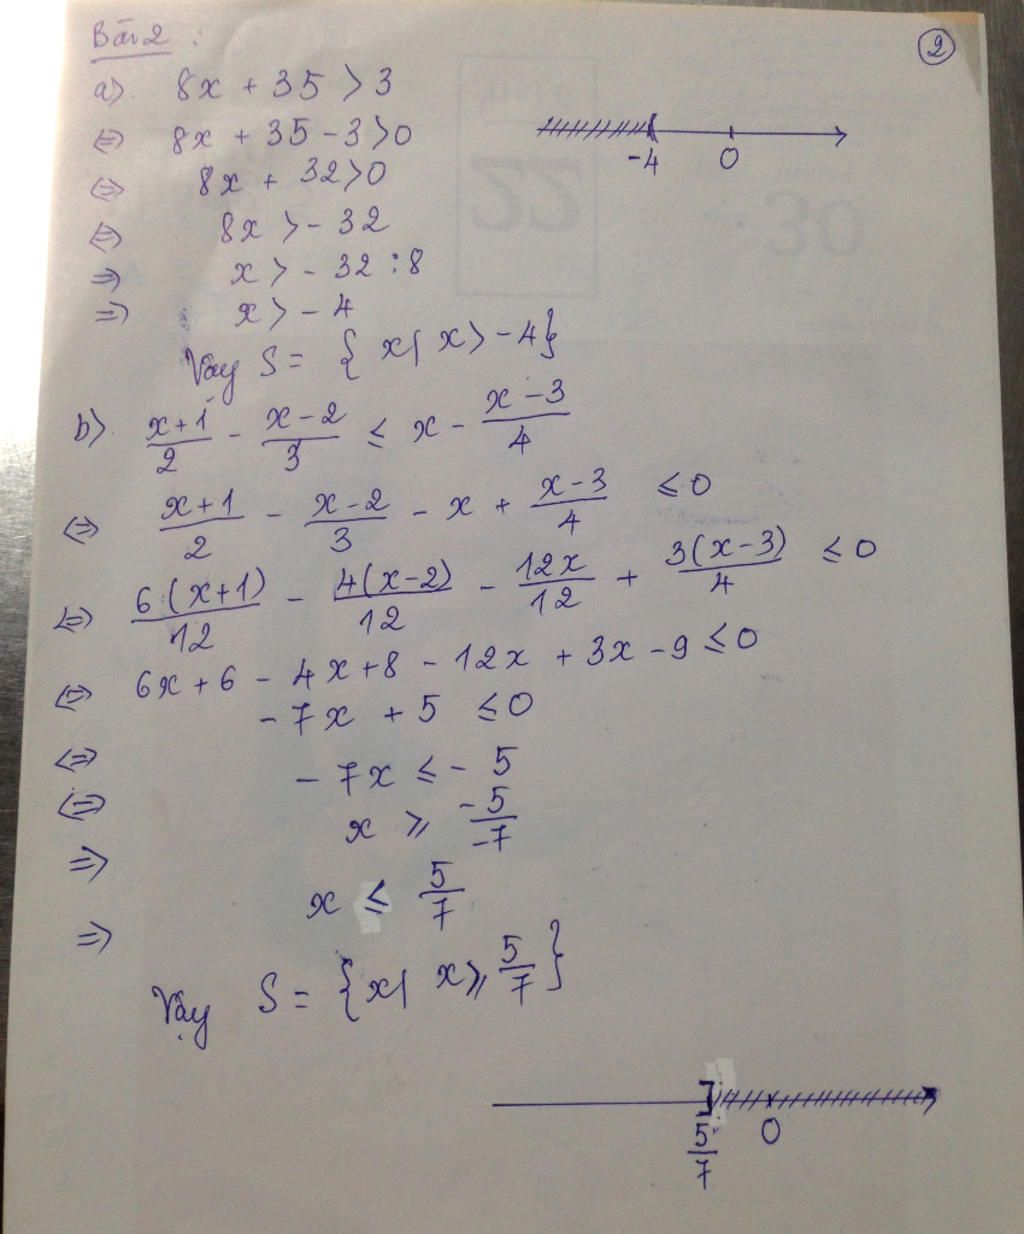 Bài 2 :
2
a) 8x + 35 > 3
⇔ 8x + 35 - 3 > 0
⇔ 8x + 32 > 0
⇔ 8x > - 32
⇒ x > - 32 : 8
⇒ x > - 4
Vậy S = { x | x > - 4 }
-4 0
b) (x+1)/2 - (x-2)/3 ≤ x - (x-3)/4
⇔ (x+1)/2 - (x-2)/3 - x + (x-3)/4 ≤ 0
⇔ 6(x+1)/12 - 4(x-2)/12 - 12x/12 + 3(x-3)/4 ≤ 0
⇔ 6x + 6 - 4x + 8 - 12x + 3x - 9 ≤ 0
- 7x + 5 ≤ 0
⇔ - 7x ≤ - 5
⇔ x ⩾ -5/-7
⇒
x ≤ 5/7
⇒
Vậy S = { x | x ⩾ 5/7 }
5/7 0
22
30